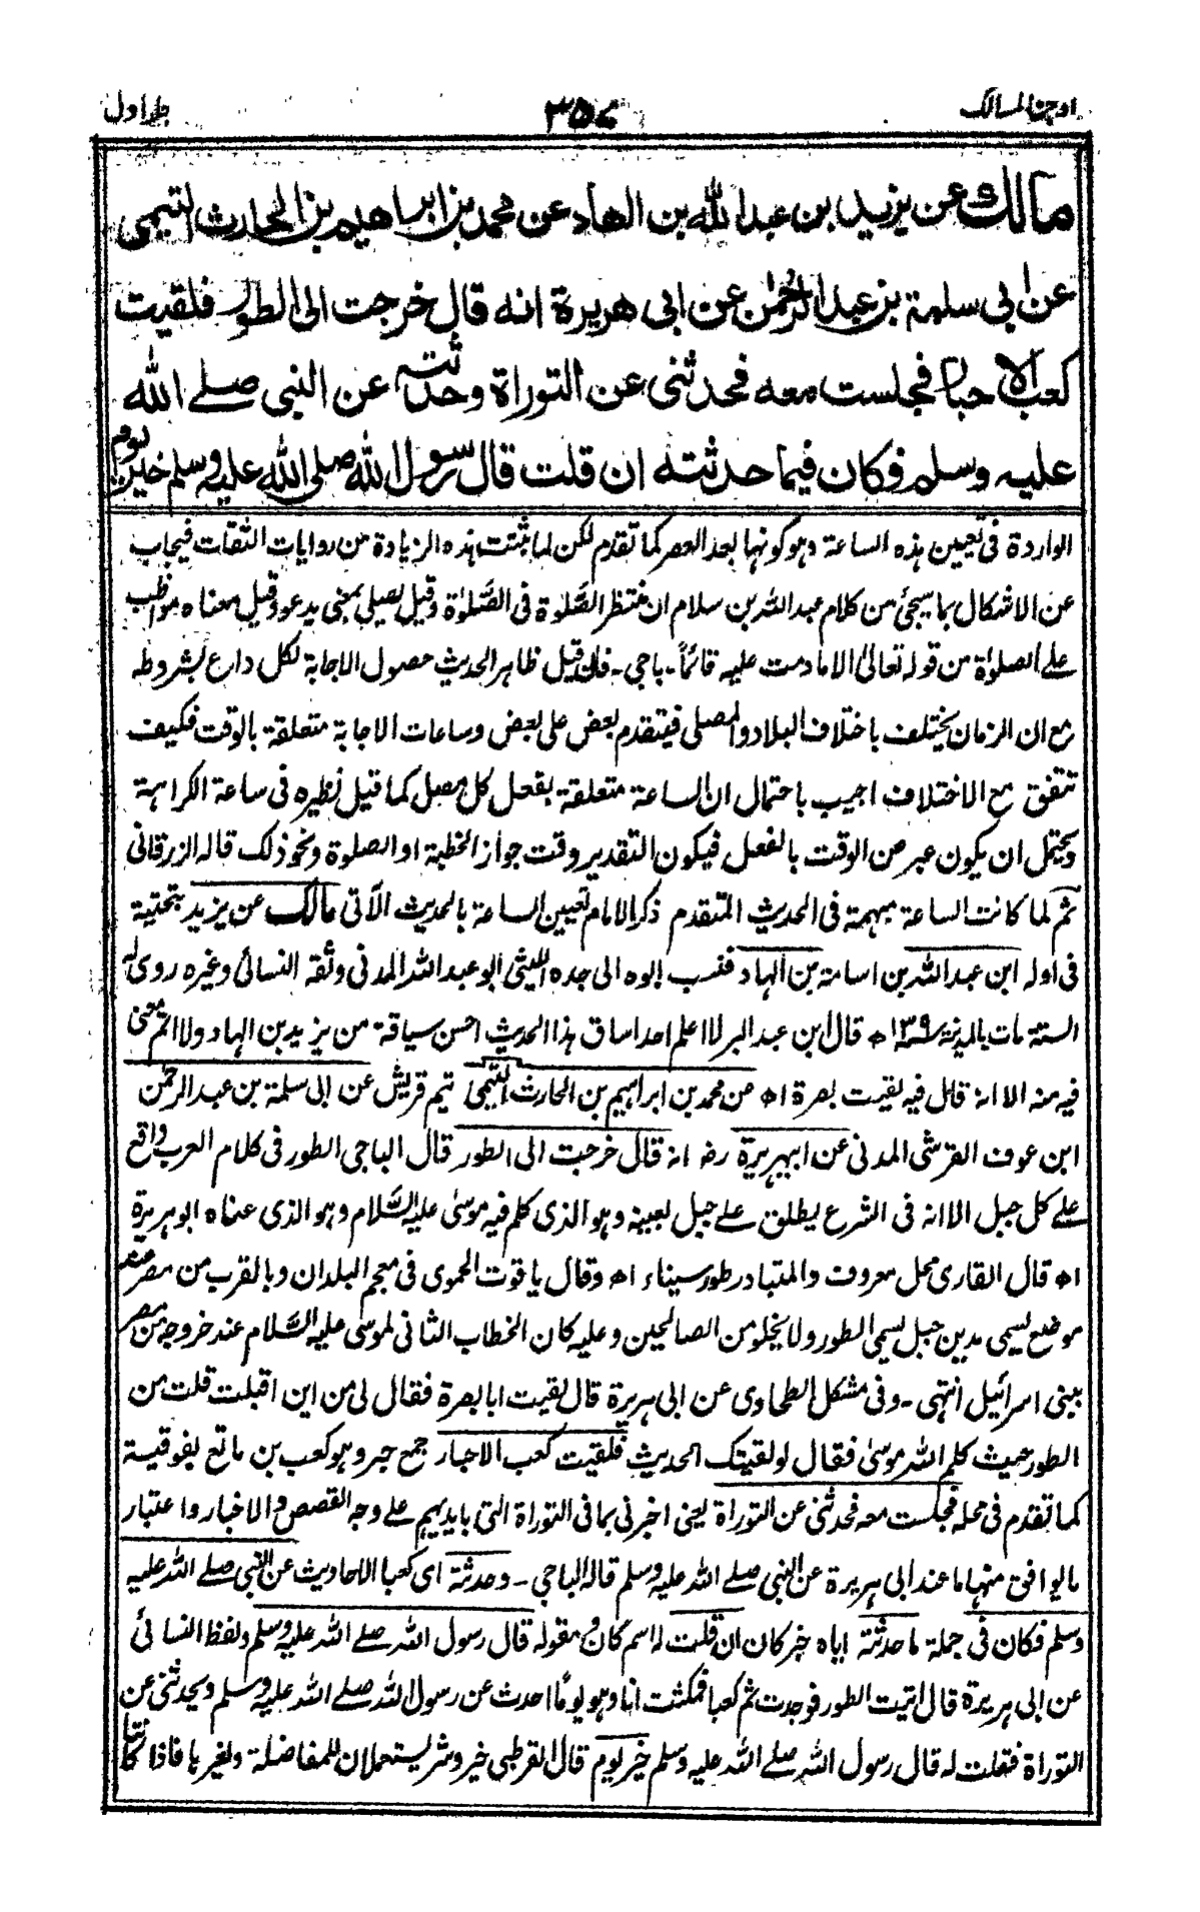 اوجز المسالك
٣٥٤
جلد اول
مالك عن يزيد بن عبد الله بن الهاد عن محمد بن ابراهيم بن الحارث التيمى
عن ابى سلمة بن عبد الرحمٰن عن ابى هريرة انه قال خرجت الى الطور فلقيت
كعب الاحبار فجلست معه فحدثنى عن التوراة وحدثته عن النبى صلے الله
عليه وسلم فكان فيما حدثته ان قلت قال رسول الله صلى الله عليه وسلم خير يوم
الواردة فى تعيين هذه الساعة وهو كونها بعد العصر كما تقدم لكن لما ثبتت هذه الزيادة من روايات الثقات فيجاب
عن الاشكال بما سيجئ من كلام عبد الله بن سلام ان منتظر الصَّلوٰة فى الصَّلوٰة وقيل يصلى بمعنى يدعو وقيل معناه مواظب
علے الصلوٰة من قوله تعالىٰ الا ما دمت عليه قائماً۔ باجى۔ فان قيل ظاهر الحديث حصول الاجابة لكل داع بشروطه
مع ان الزمان يختلف باختلاف البلاد والمصلى فيتقدم بعض على بعض وساعات الاجابة متعلقة بالوقت فكيف
تتفق مع الاختلاف اجيب باحتمال ان الساعة متعلقة بفعل كل مصل كما قيل نظيره فى ساعة الكراهة
ويحتمل ان يكون عبر عن الوقت بالفعل فيكون التقدير وقت جواز الخطبة او الصلوة ونحو ذلك قاله الزرقانى
ثم لما كانت الساعة مبهمة فى الحديث المتقدم ذكر الامام تعيين الساعة بالحديث الآتى مالك عن يزيد بتحتية
فى اوله ابن عبد الله بن اسامة بن الهاد فنسب ابوه الى جده الليثى ابو عبد الله المدنى وثقه النسائى وغيره روى له
الستة مات بالمدينة ١٣٩ اھ قال ابن عبد البر لا اعلم احدا ساق هذا الحديث احسن سياقة من يزيد بن الهاد ولا اتم معنى
فيه منه الا انه قال فيه لقيت بصرة اھ عن محمد بن ابراهيم بن الحارث التيمى تيم قريش عن ابى سلمة بن عبد الرحمٰن
ابن عوف القرشى المدنى عن ابيهريرة رضه انه قال خرجت الى الطور قال الباجى الطور فى كلام العرب واقع
علے كل جبل الا انه فى الشرع يطلق علے جبل بعينه وهو الذى كلم فيه موسىٰ عليه السَّلام وهو الذى عناه ابو هريرة
اھ قال القارى محل معروف والمتبادر طور سيناء اھ وقال ياقوت الحموى فى معجم البلدان وبالقرب من مصر عند
موضع يسمى مدين جبل يسمى الطور ولا يخلو من الصالحين وعليه كان الخطاب الثانى لموسى عليه السَّلام عند خروجه من مصر
ببنى اسرائيل انتهى۔ وفى مشكل الطحاوى عن ابى هريرة قال لقيت ابا بصرة فقال لى من اين اقبلت قلت من
الطور حيث كلم الله موسىٰ فقال لو لقيتك الحديث فلقيت كعب الاحبار جمع حبر وهو كعب بن ماتع بفوقية
كما تقدم فى محله فجلست معه فحدثنى عن التوراة يعنى اخبرنى بما فى التوراة التى بايديهم علے وجه القصص والاخبار واعتبار
ما يوافق منها ما عند ابى هريرة عن النبى صلے الله عليه وسلم قاله الباجى ۔ وحدثته اى كعبا الاحاديث عن النبى صلے الله عليه
وسلم فكان فى جملة ما حدثته اياه خبر كان ان قلت له اسم كان ومقوله قال رسول الله صلے الله عليه وسلم ولفظ النسائى
عن ابى هريرة قال اتيت الطور فوجدت ثم كعبا فمكثت انا وهو يوما احدث عن رسول الله صلے الله عليه وسلم ويحدثنى عن
التوراة فقلت له قال رسول الله صلے الله عليه وسلم خير يوم قال القرطبى خير وشر يستعملان للمفاضلة ولغيرها فاذا كانتا